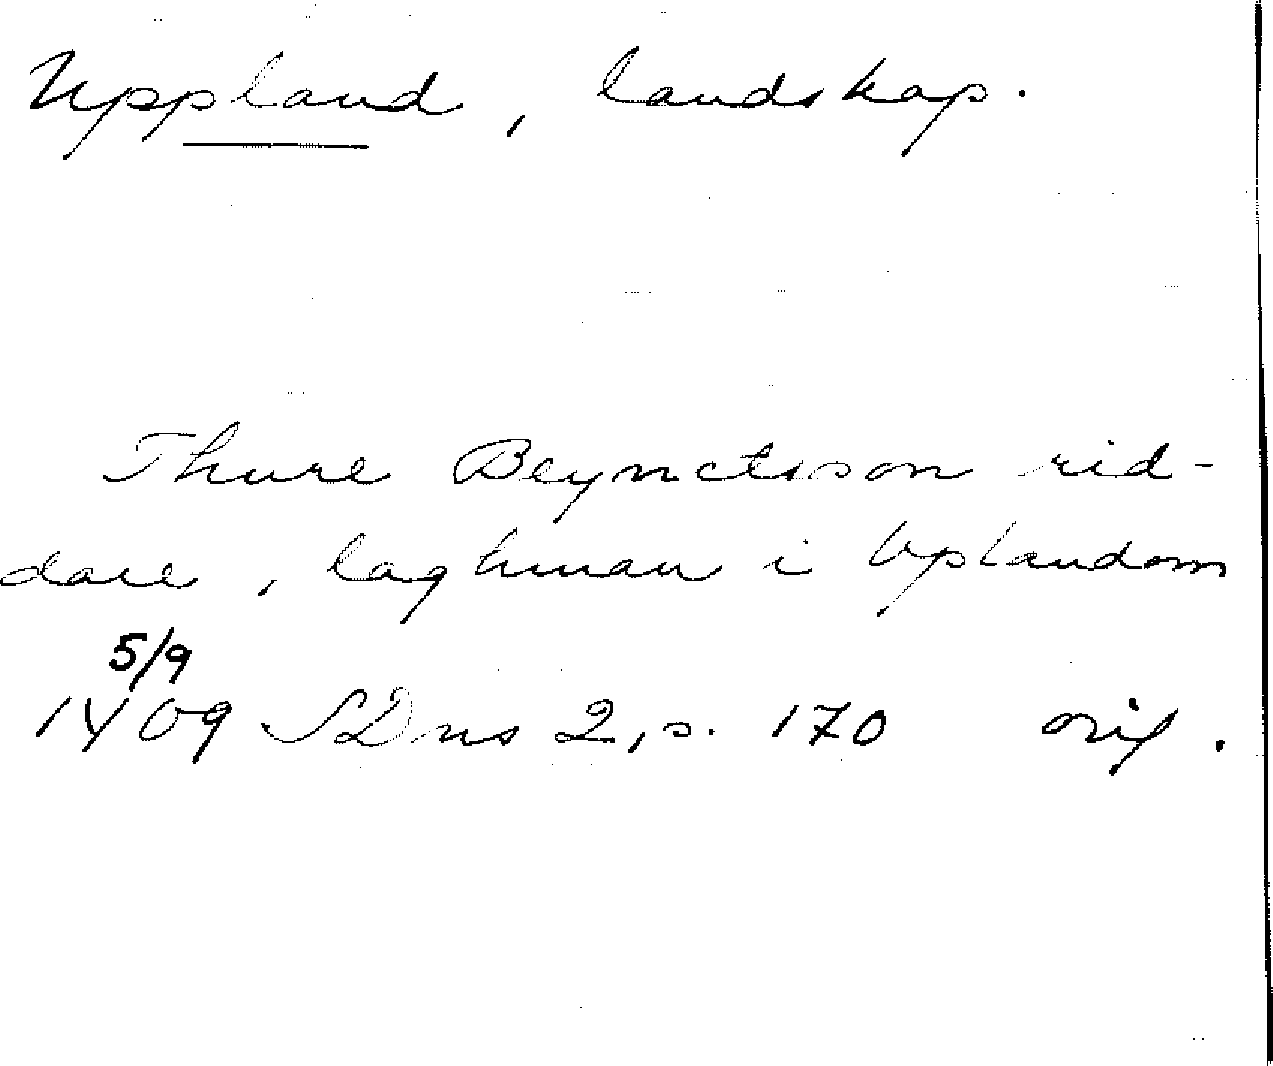 Uppland, landskap.
Thure Beynctsson rid-
dare, laghman i Uplandom
5/9
1409 SDns 2, s. 170 orig.